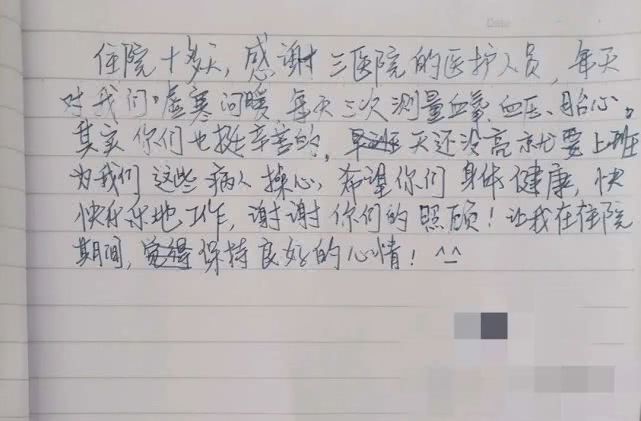 住院十多天，感谢三医院的医护人员，每天
对我们嘘寒问暖，每天三次测量血氧、血压、胎心。
其实你们也挺辛苦的，天还没亮就要上班
为我们这些病人操心，希望你们身体健康，快
快乐乐地工作，谢谢你们的照顾！让我在住院
期间，保持良好的心情！^^